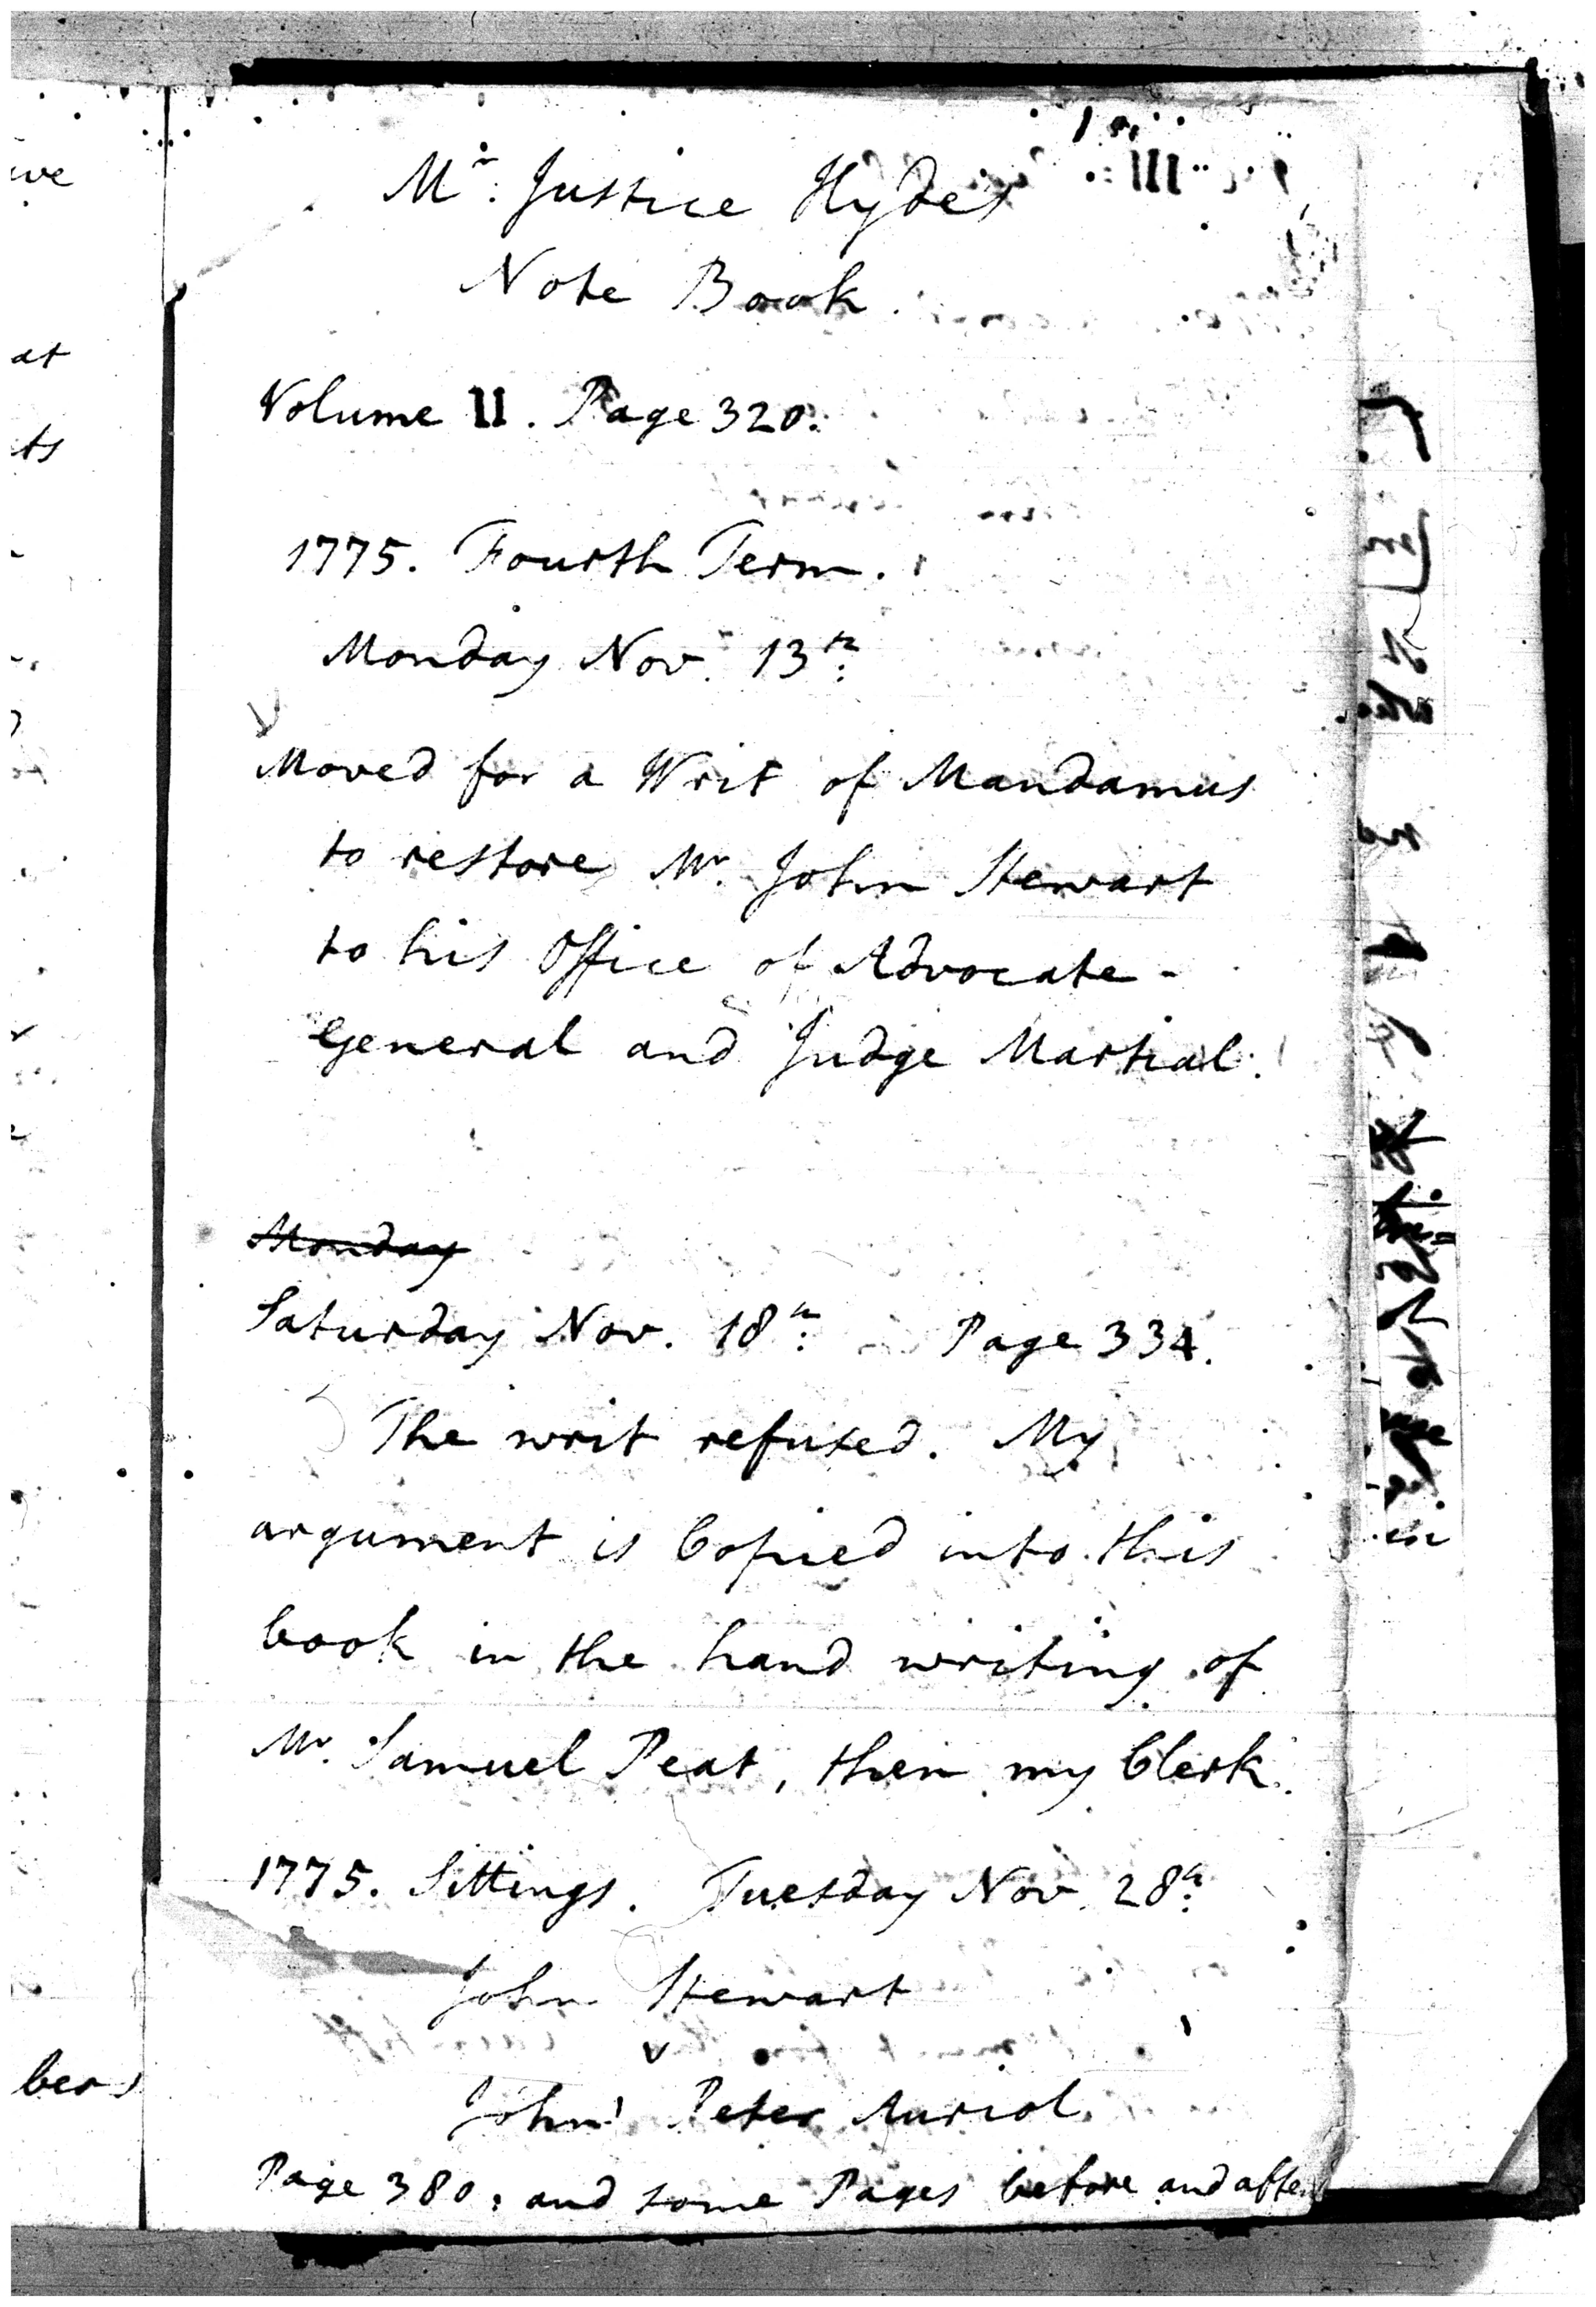 Mr. Justice Hydes
Note Book.
Volume II. Page 320.
1775. Fourth Term.
Monday Nov. 13th.
Moved for a Writ of Mandamus
to restore Mr. John Stewart
to his Office of Advocate-
General and Judge Martial.
Monday
Saturday Nov. 18th. Page 334.
The writ refused. My
argument is Copied into this
book in the hand writing of
Mr. Samuel Peat, then my Clerk.
1775. Sittings. Tuesday Nov. 28th.
John Stewart
v
John Peter Auriol.
Page 380, and some Pages before and after